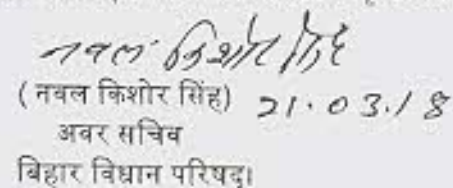 नवल किशोर सिंह
(नवल किशोर सिंह) 21.03.18
अवर सचिव
बिहार विधान परिषद्।